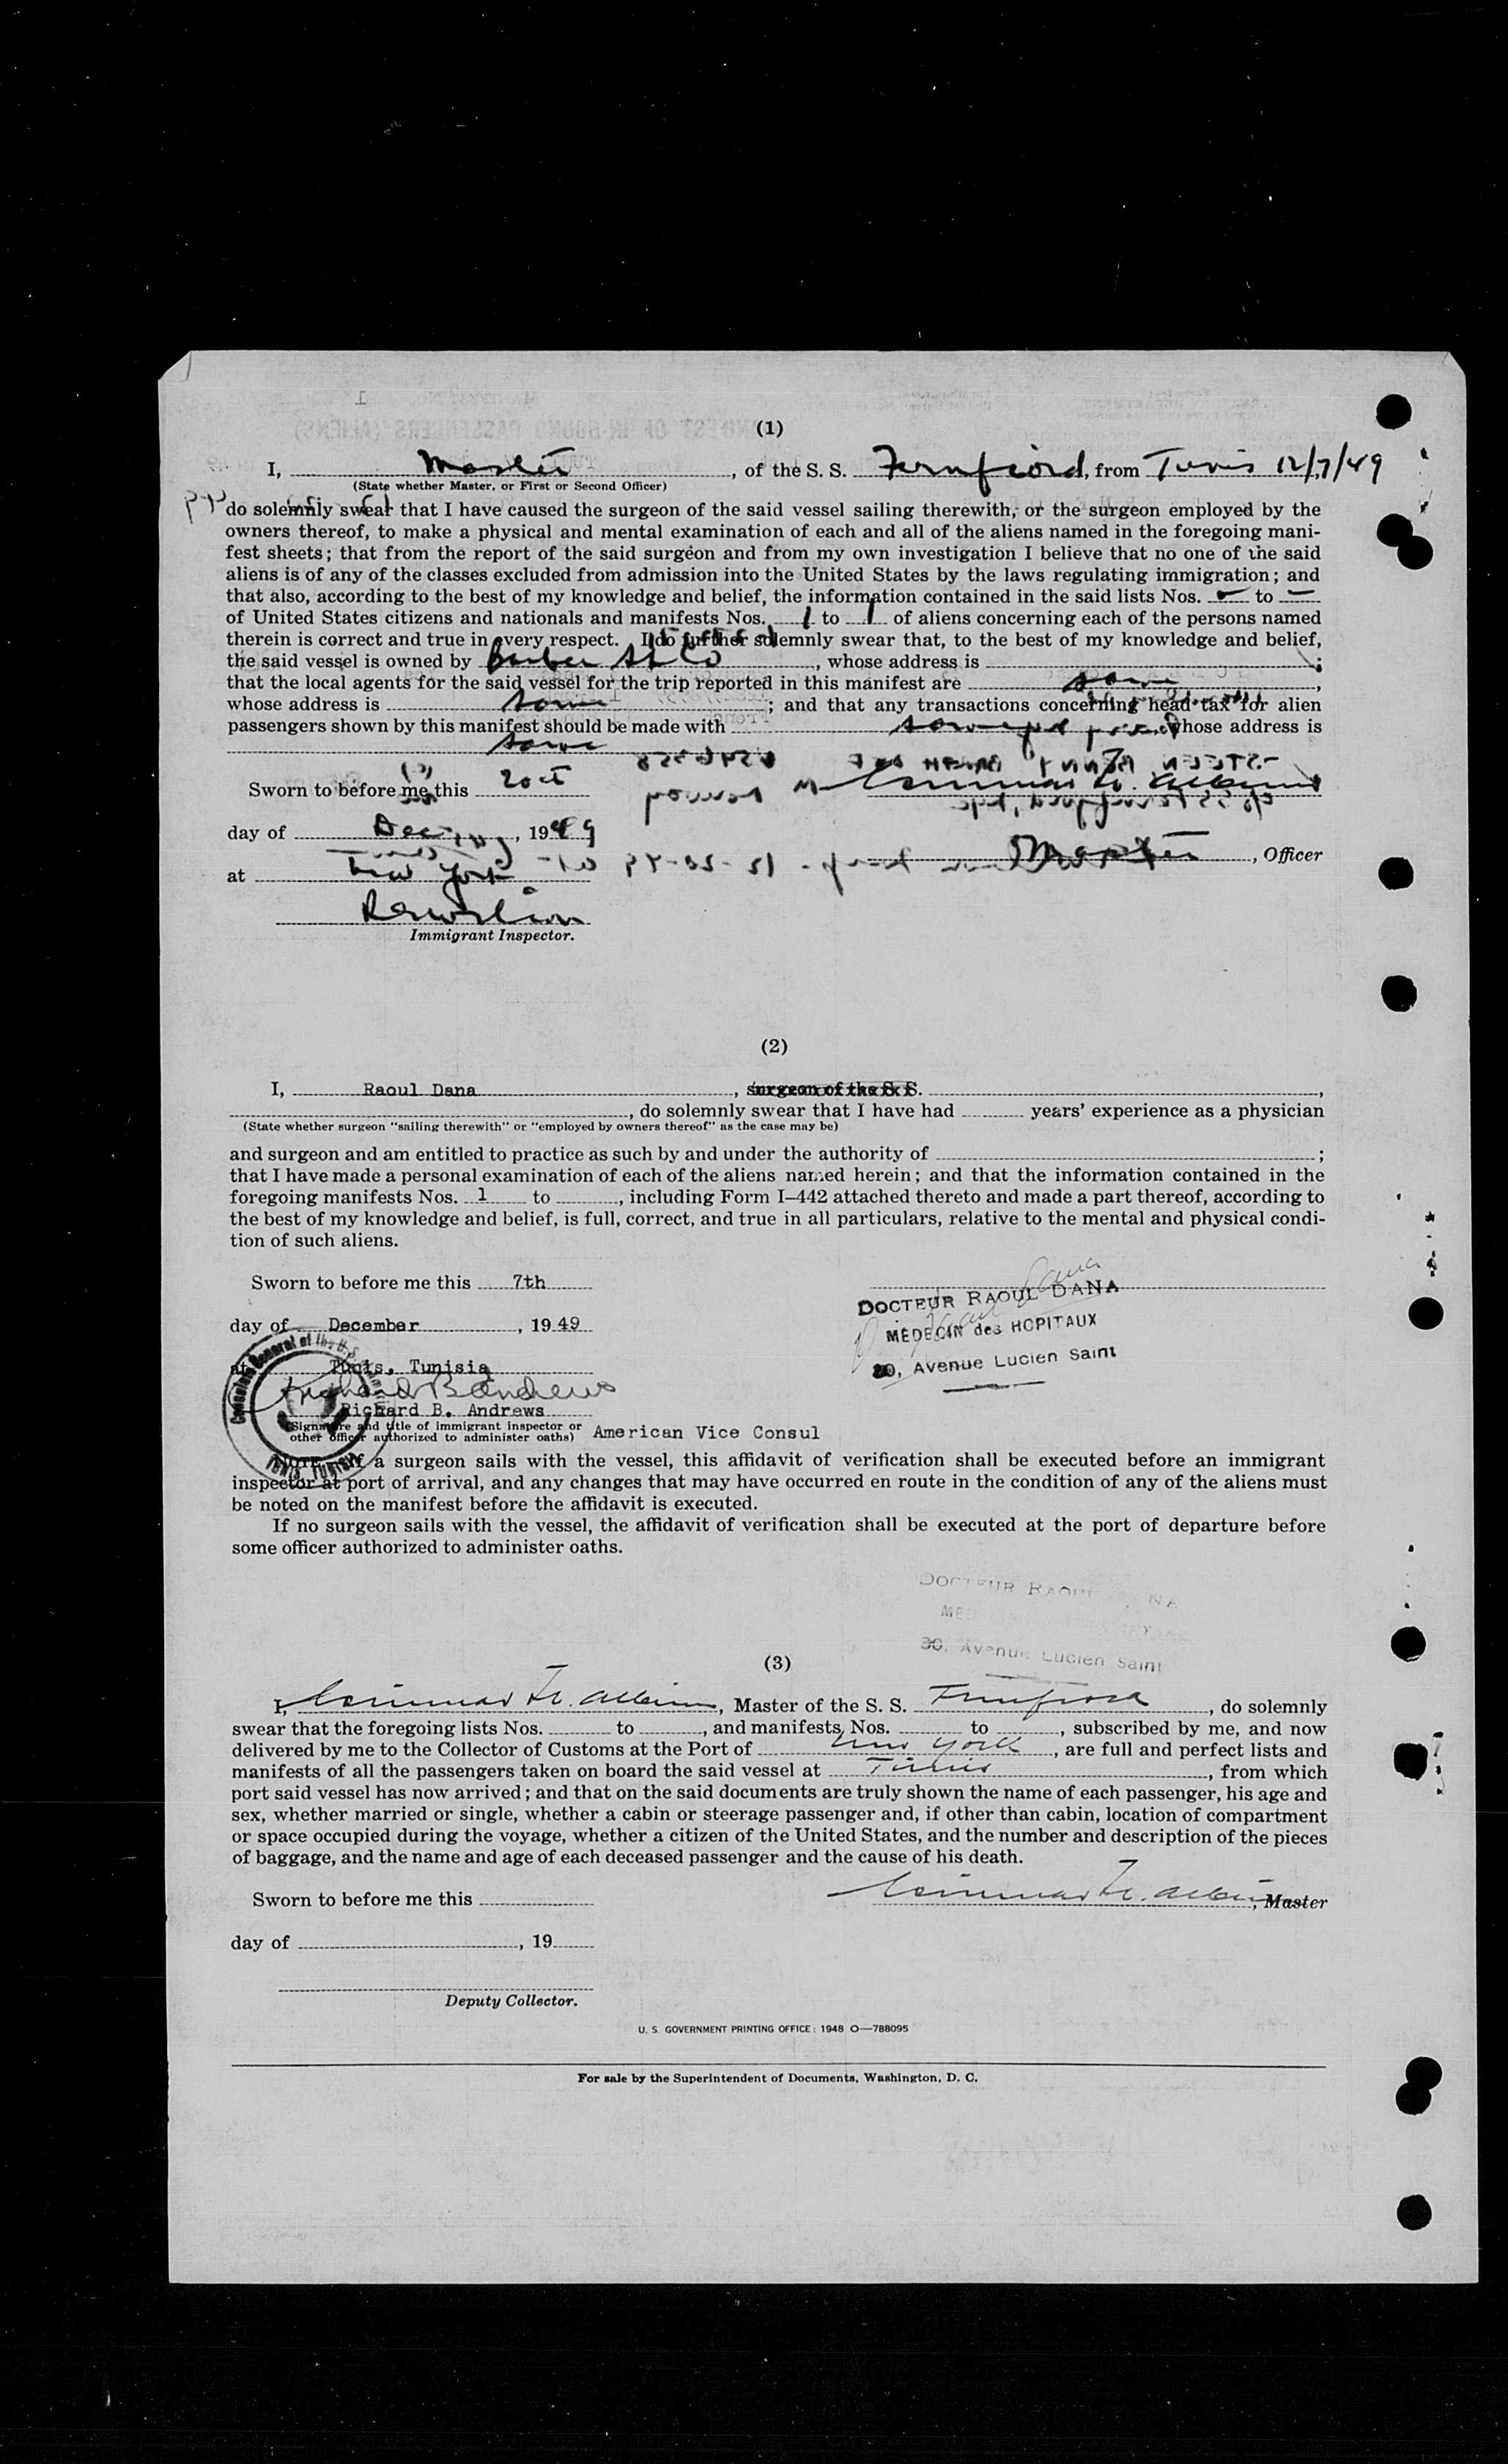 (1)
I, Master, of the S. S. Fernfiord, from Tunis 12/7/49
(State whether Master, or First or Second Officer)
do solemnly swear that I have caused the surgeon of the said vessel sailing therewith, or the surgeon employed by the
owners thereof, to make a physical and mental examination of each and all of the aliens named in the foregoing mani-
fest sheets; that from the report of the said surgeon and from my own investigation I believe that no one of the said
aliens is of any of the classes excluded from admission into the United States by the laws regulating immigration; and
that also, according to the best of my knowledge and belief, the information contained in the said lists Nos. — to —
of United States citizens and nationals and manifests Nos. 1 to 1 of aliens concerning each of the persons named
therein is correct and true in every respect. I do further solemnly swear that, to the best of my knowledge and belief,
the said vessel is owned by Barber SS Co, whose address is ;
that the local agents for the said vessel for the trip reported in this manifest are same,
whose address is same; and that any transactions concerning head tax for alien
passengers shown by this manifest should be made with same whose address is
same
Sworn to before me this 20th
day of Dec, 1949
Master, Officer
at New York
Immigrant Inspector.
(2)
I, Raoul Dana, surgeon of the S. S. ,
, do solemnly swear that I have had years' experience as a physician
(State whether surgeon "sailing therewith" or "employed by owners thereof" as the case may be)
and surgeon and am entitled to practice as such by and under the authority of ;
that I have made a personal examination of each of the aliens named herein; and that the information contained in the
foregoing manifests Nos. 1 to , including Form I–442 attached thereto and made a part thereof, according to
the best of my knowledge and belief, is full, correct, and true in all particulars, relative to the mental and physical condi-
tion of such aliens.
Sworn to before me this 7th
DOCTEUR RAOUL DANA
day of December, 1949
MÉDECIN des HOPITAUX
30, Avenue Lucien Saint
at Tunis, Tunisia
Richard B Andrews
Richard B. Andrews
(Signature and title of immigrant inspector or
other officer authorized to administer oaths) American Vice Consul
NOTE.—If a surgeon sails with the vessel, this affidavit of verification shall be executed before an immigrant
inspector at port of arrival, and any changes that may have occurred en route in the condition of any of the aliens must
be noted on the manifest before the affidavit is executed.
If no surgeon sails with the vessel, the affidavit of verification shall be executed at the port of departure before
some officer authorized to administer oaths.
DOCTEUR RAOUL DANA
30, Avenue Lucien Saint
(3)
I, , Master of the S. S. Fernfiord, do solemnly
swear that the foregoing lists Nos. to , and manifests Nos. to , subscribed by me, and now
delivered by me to the Collector of Customs at the Port of New York, are full and perfect lists and
manifests of all the passengers taken on board the said vessel at Tunis, from which
port said vessel has now arrived; and that on the said documents are truly shown the name of each passenger, his age and
sex, whether married or single, whether a cabin or steerage passenger and, if other than cabin, location of compartment
or space occupied during the voyage, whether a citizen of the United States, and the number and description of the pieces
of baggage, and the name and age of each deceased passenger and the cause of his death.
Sworn to before me this
, Master
day of , 19
Deputy Collector.
U. S. GOVERNMENT PRINTING OFFICE: 1948 O—788095
For sale by the Superintendent of Documents, Washington, D. C.